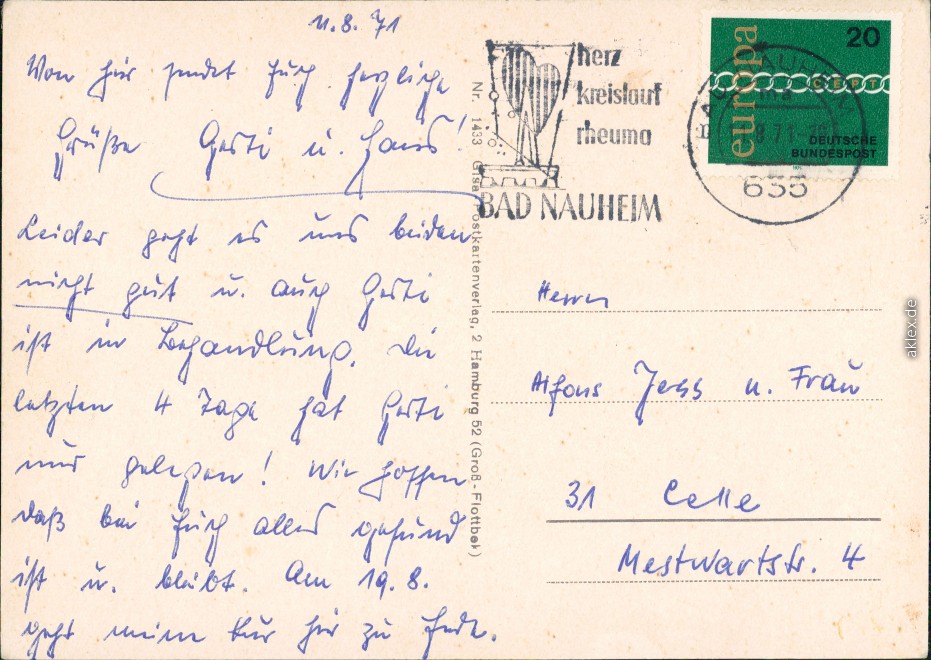 11.8.71
Von hier sendet Euch herzliche
Grüße Gerti u. Hans!
Leider geht es uns beiden
nicht gut u. auch Gerti
ist in Behandlung. Die
letzten 4 Tage hat Gerti
nur gelegen! Wir hoffen
daß bei Euch alles gesund
ist u. bleibt. Am 19.8.
geht meine Kur hier zu Ende.
Nr. 1433 Gisa Postkartenverlag, 2 Hamburg 52 (Groß-Flottbek)
herz
kreislauf
rheuma
BAD NAUHEIM
europa
20
CEPT
DEUTSCHE
BUNDESPOST
BAD NAUHEIM
8.71
635
Herrn
Alfons Jess u. Frau
31 Celle
Mestwartstr. 4
aklex.de